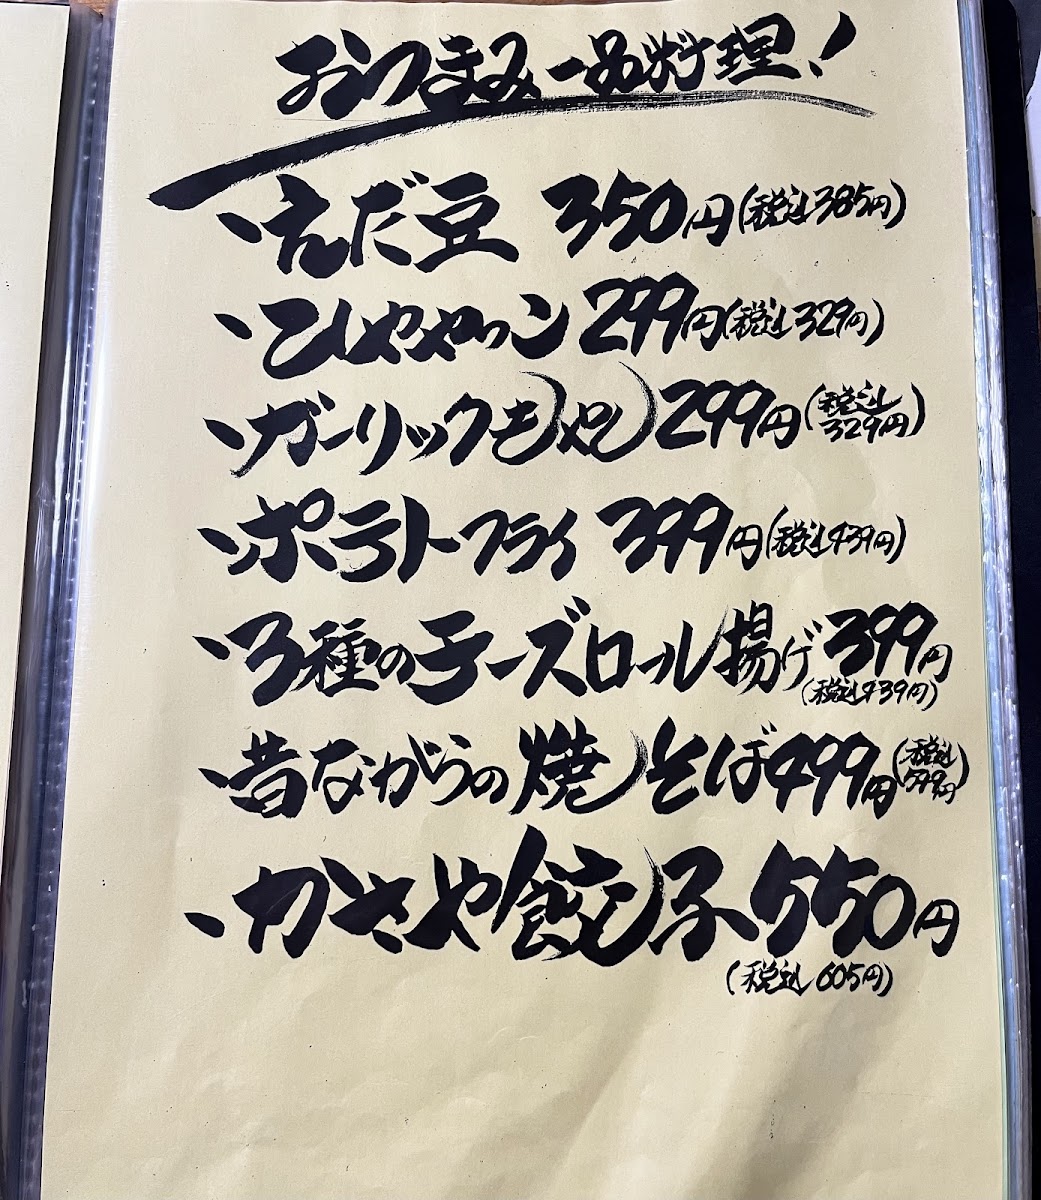 おつまみ一品料理!
、えだ豆 350円(税込385円)
、ひややっコ 299円(税込329円)
、ガーリックもやし 299円(税込329円)
、ポテトフライ 399円(税込439円)
、3種のチーズロール揚げ 399円(税込439円)
、昔ながらの焼そば 499円(税込549円)
、かさや餃子 550円(税込605円)